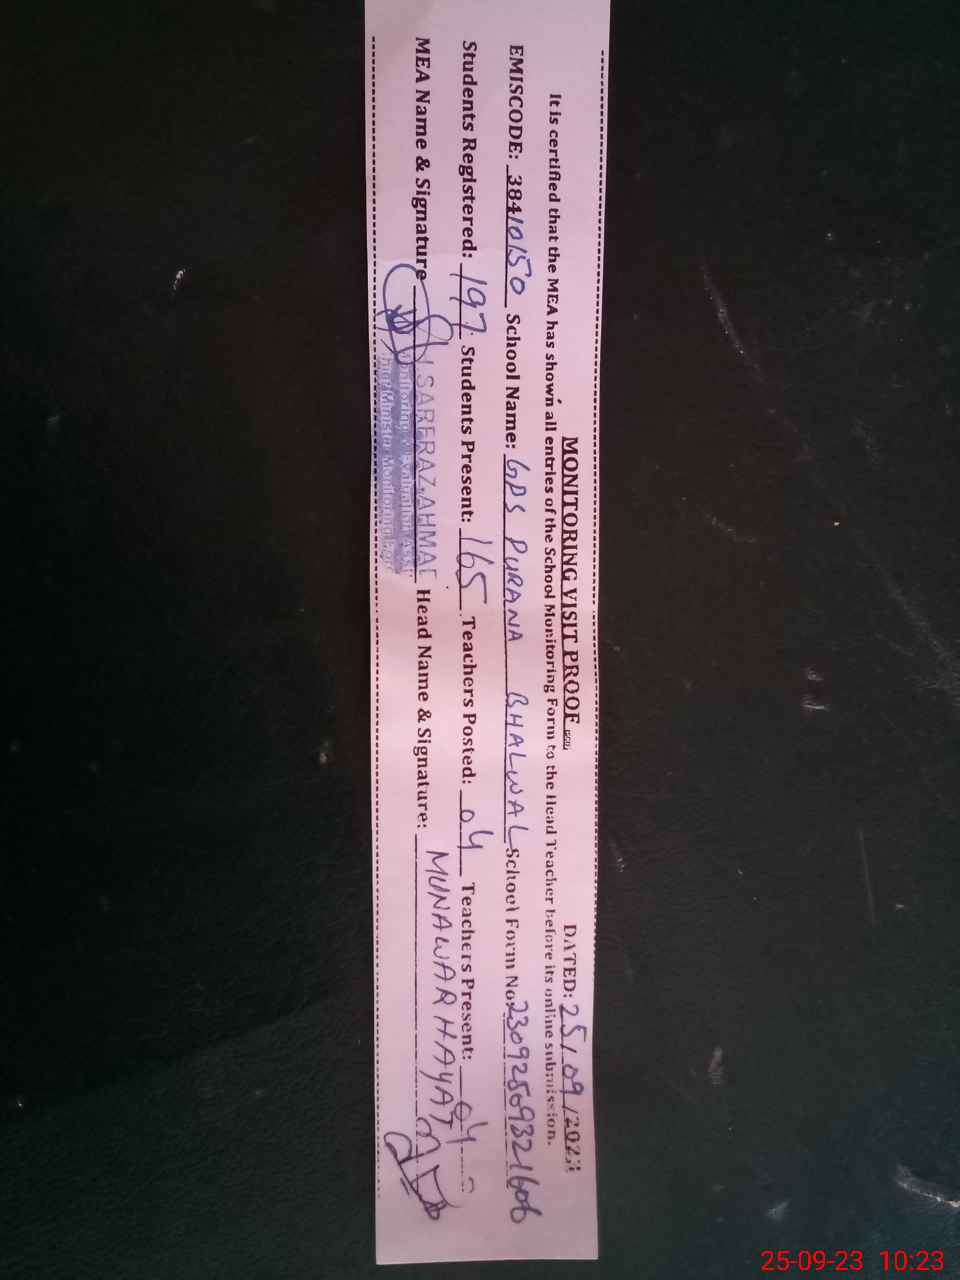 MONITORING VISIT PROOF DATED: 25/09/2023
It is certified that the MEA has shown all entries of the School Monitoring Form to the Head Teacher before its online submission.
EMISCODE: 38410150 School Name: GPS PURANA BHALWAL School Form No: 23092509321606
Students Registered: 197 Students Present: 165 Teachers Posted: 04 Teachers Present: 04
MEA Name & Signature SARFRAZ AHMAD Head Name & Signature: MUNAWAR HAYAT
Monitoring & Evaluation Asstt
Chief Minister Monitoring
25-09-23 10:23